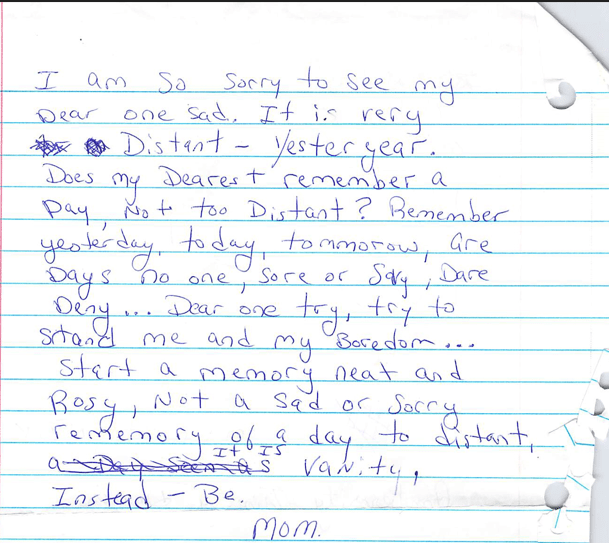 I am so sorry to see my
Dear one sad. It is very
Distant - Yesteryear.
Does my Dearest remember a
Day, Not too Distant? Remember
yesterday, today, tommorow, are
Days no one, sore or , Dare
Deny... Dear one try, try to
stand me and my Boredom...
Start a memory neat and
Rosy, Not a sad or sorry
rememory of a day to distant,
It IS
a Day Seems vanity,
Instead - Be.
MOM.